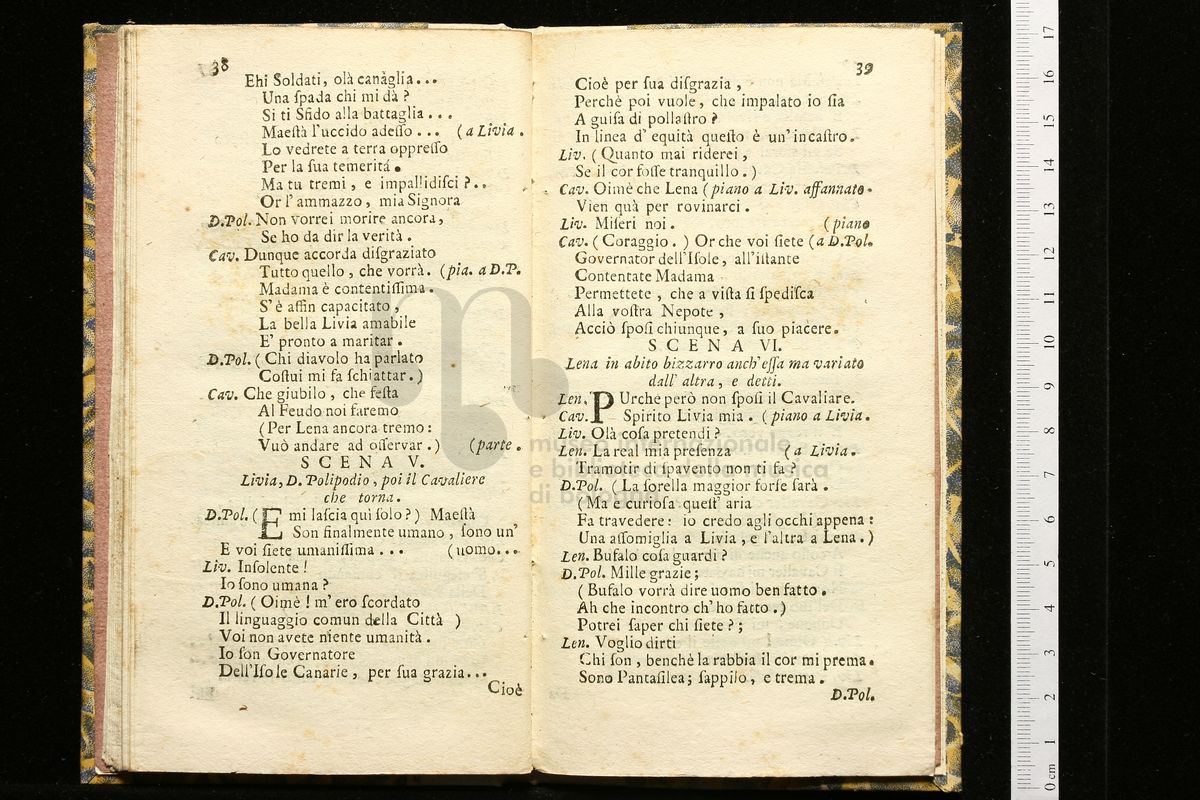 38
Ehi Soldati, olà canaglia...
Una spada chi mi dà ?
Si ti Sfido alla battaglia...
Maeſtà l'uccido adeſſo... (a Livia.
Lo vedrete a terra oppreſſo
Per la ſua temerità.
Ma tu tremi, e impallidiſci ?..
Or l'ammazzo, mia Signora
D.Pol. Non vorrei morire ancora,
Se ho da dir la verità.
Cav. Dunque accorda diſgraziato
Tutto quello, che vorrà. (pia. a D.P.
Madama è contentiſſima.
S'è affin capacitato,
La bella Livia amabile
E' pronto a maritar.
D.Pol. (Chi diavolo ha parlato
Coſtui mi fa ſchiattar.)
Cav. Che giubilo, che feſta
Al Feudo noi faremo
(Per Lena ancora tremo:
Vuò andare ad oſſervar.) (parte.
SCENA V.
Livia, D. Polipodio, poi il Cavaliere
che torna.
D.Pol. (E mi laſcia quì ſolo ?) Maeſtà
Son finalmente umano, ſono un'
E voi ſiete umaniſſima... (uomo...
Liv. Inſolente !
Io ſono umana ?
D.Pol. (Oimè ! m'ero ſcordato
Il linguaggio comun della Città )
Voi non avete niente umanità.
Io ſon Governatore
Dell'Iſole Canarie, per ſua grazia...
Cioè
39
Cioè per ſua diſgrazia,
Perchè poi vuole, che impalato io ſia
A guiſa di pollaſtro ?
In linea d'equità queſto è un'incaſtro.
Liv. (Quanto mai riderei,
Se il cor foſſe tranquillo.)
Cav. Oimè che Lena (piano a Liv. affannato.
Vien quà per rovinarci.
Liv. Miſeri noi. (piano
Cav. (Coraggio.) Or che voi ſiete (a D.Pol.
Governator dell'Iſole, all'iſtante
Contentate Madama
Permettete, che a viſta ſi ſpediſca
Alla voſtra Nepote,
Acciò ſpoſi chiunque, a ſuo piacere.
SCENA VI.
Lena in abito bizzarro anch'eſſa ma variato
dall' altra, e detti.
Len. PUrche però non ſpoſi il Cavaliare.
Cav. Spirito Livia mia. (piano a Livia.
Liv. Olà coſa pretendi ?
Len. La real mia preſenza (a Livia.
Tramotir di ſpavento non ti fa ?
D.Pol. (La ſorella maggior forſe ſarà.
(Ma e curioſa queſt' aria
Fa travedere: io credo agli occhi appena:
Una aſſomiglia a Livia, e l'altra a Lena.)
Len. Bufalo coſa guardi ?
D.Pol. Mille grazie;
(Bufalo vorrà dire uomo ben fatto.
Ah che incontro ch'ho fatto.)
Potrei ſaper chi ſiete ?;
Len. Voglio dirti
Chi ſon, benchè la rabbia il cor mi prema.
Sono Pantaſilea; ſappilo, e trema.
D.Pol.